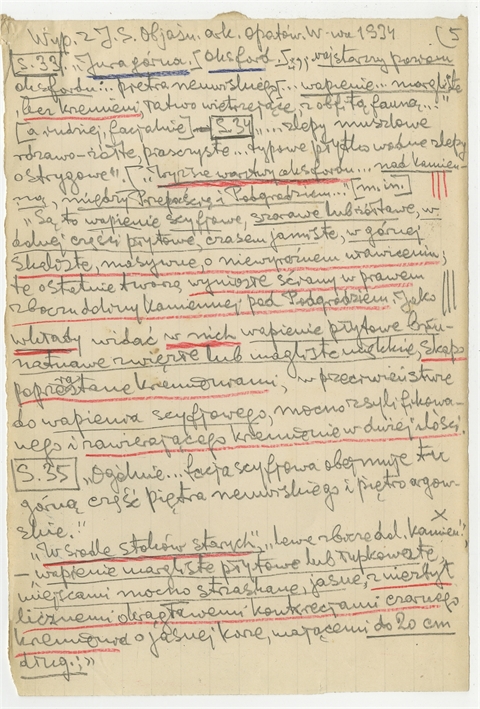 Wyp. z J.S. Objaśn. ark. Opatów. W-wa 1934 (5
S. 33 "Jura górna. [Oksford] ... najstarszy poziom
oksfordu... piętra newerskiego]... wapienie... margliste
bez krzemieni, łatwo wietrzejące, z obfitą fauną..."
[a rudziej, facjalnie] – S. 34 "... zlepy muszlowe
rdzawo-żółte, piaszczyste... typowe płytko wodne zlepy
ostrygowe" ["Wyższe warstwy oksfordu... nad Kamien-
ną, między Prepaścią i Podgrodziem..." [m. in.]
"Są to wapienie scyfiowe, szarawe lub żółtawe, w
dolnej części płytowe, czasem jamiste, w górnej
skaliste, masywne, o niewyraźnem uławiceniu;
te ostatnie tworzą wyniosłe ściany w prawem
zboczu doliny Kamiennej pod Podgrodziem. Jako
wkłady widać w nich wapienie płytowe bru-
natnawe zwięzłe lub margliste miękkie, skąpo
poprzerastane krzemieniami, w przeciwieństwie
do wapienia scyfjowego, mocno zsylifikowa-
nego i zawierającego krzemienie w dużej ilości.
S. 35 "Ogólnie... facja scyfjowa obejmuje tu
górną część piętra newerskiego i piętro argow-
skie."
"W siodle stoków starych", "lewe zbocze dol. Kamien",
– wapienie margliste płytowe lub łupkowate,
miejscami mocno strzaskane, jasne, z niezbyt
licznemi okrągławemi konkrecjami czarnego
krzemienia o jasnej korze, mającemi do 20 cm
dług.;"